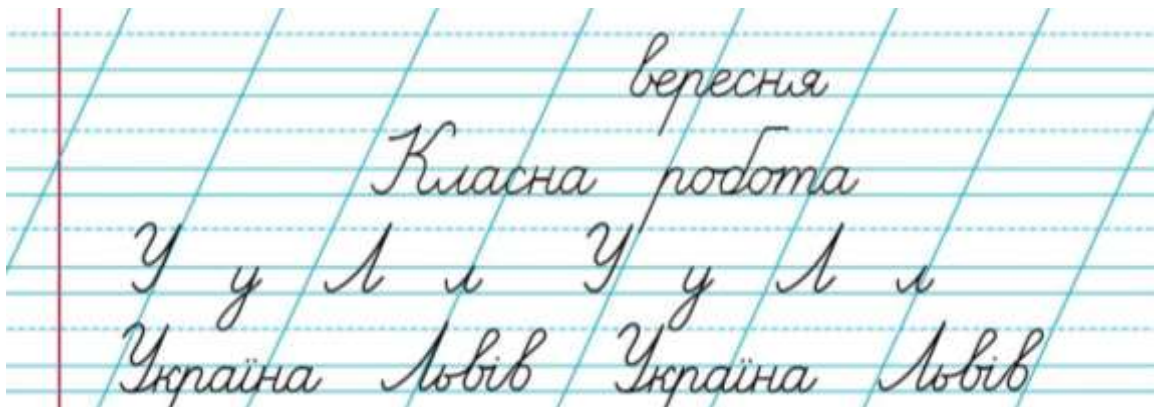 вересня
Класна робота
У у Л л У у Л л
Україна Львів Україна Львів